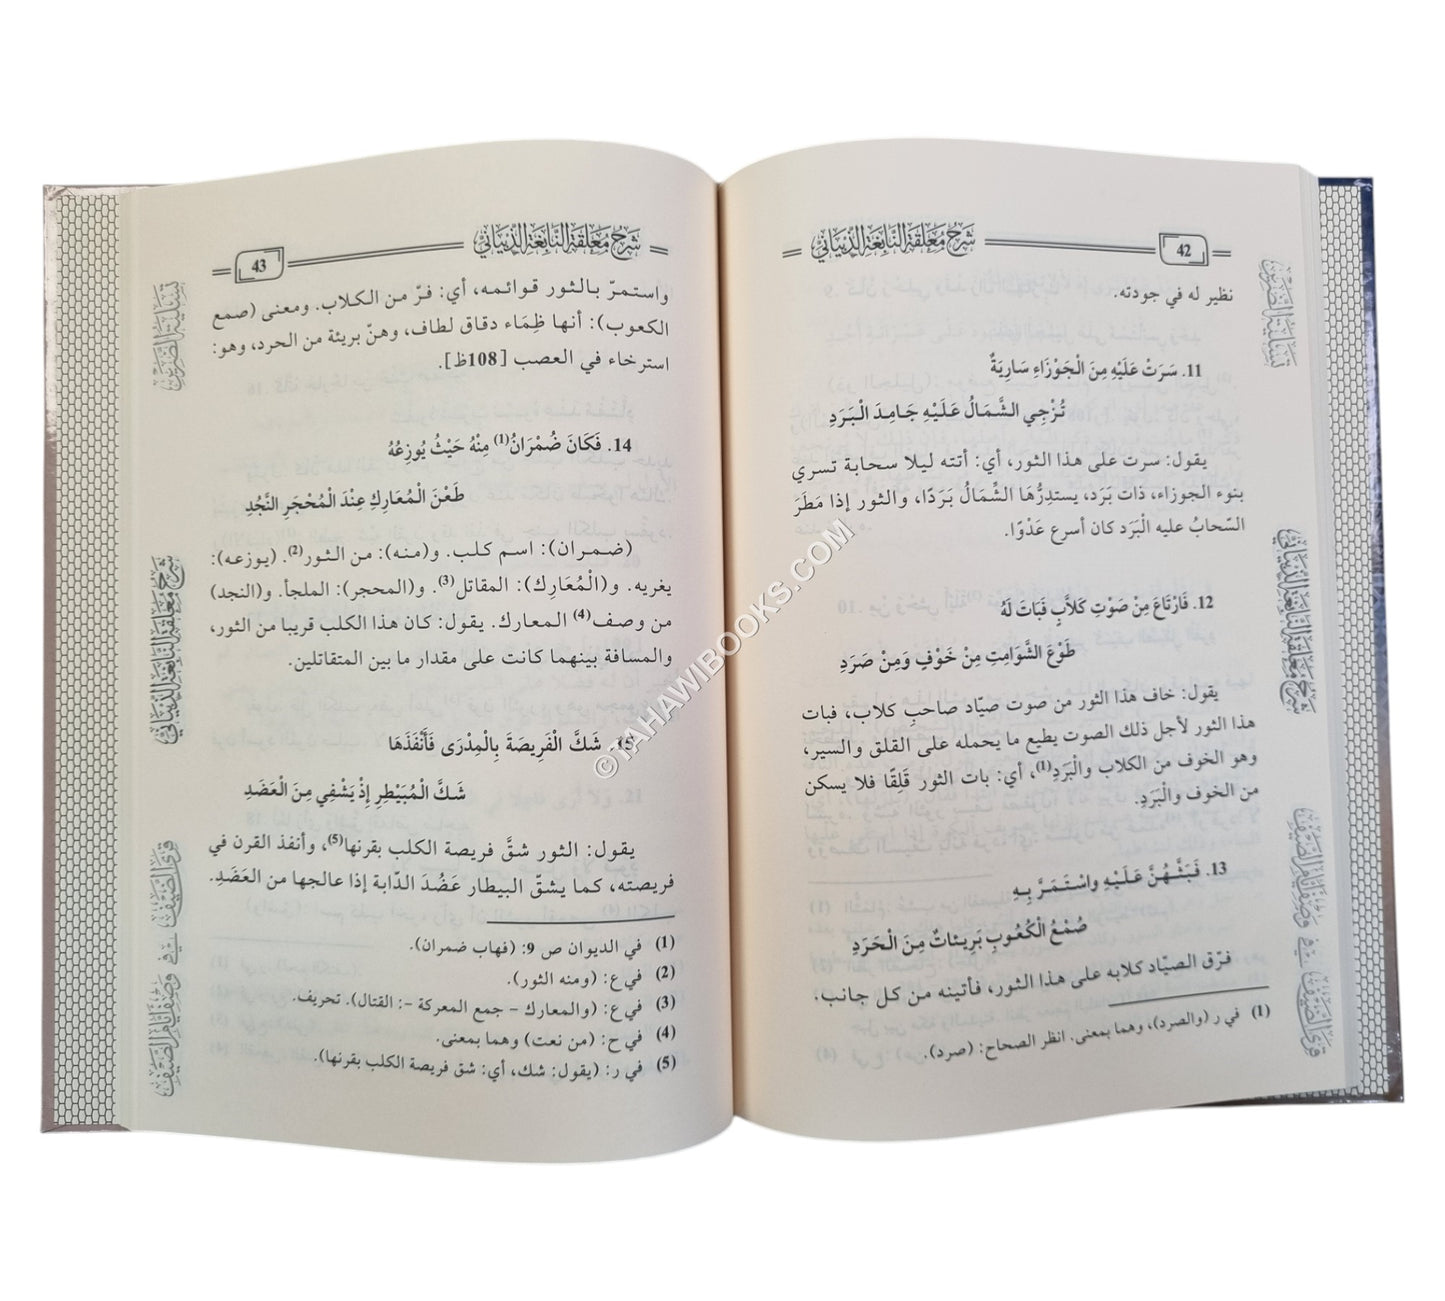 شرح معلقة النابغة الذبياني
42
نظير له في جودته.
11. سَرَتْ عَلَيْهِ مِنَ الْجَوْزَاءِ سَارِيَةٌ
تُزْجِي الشَّمَالُ عَلَيْهِ جَامِدَ الْبَرَدِ
يقول: سرت على هذا الثور، أي: أتته ليلا سحابة تسري
بنوء الجوزاء، ذات بَرَد، يستدِرُّهَا الشَّمَالُ بَرَدًا، والثور إذا مَطَرَ
السّحابُ عليه الْبَرَد كان أسرع عَدْوًا.
12. فَارْتَاعَ مِنْ صَوْتِ كَلَّابٍ فَبَاتَ لَهُ
طَوْعَ الشَّوَامِتِ مِنْ خَوْفٍ وَمِنْ صَرَدِ
يقول: خاف هذا الثور من صوت صيّاد صاحبِ كلاب، فبات
هذا الثور لأجل ذلك الصوت يطيع ما يحمله على القلق والسير،
وهو الخوف من الكلاب والْبَرَدِ(1)، أي: بات الثور قَلِقًا فلا يسكن
من الخوف والْبَرَدِ.
13. فَبَثَّهُنَّ عَلَيْهِ وَاسْتَمَرَّ بِهِ
صُمْعُ الْكُعُوبِ بَرِيئَاتٌ مِنَ الْحَرَدِ
فرّق الصيّاد كلابه على هذا الثور، فأتينه من كل جانب.
(1) في ر (والصرد)، وهما بمعنى. انظر الصحاح: (صرد).
تسلية الضرير
شرح معلقة النابغة الذبياني
شرح معلقة النابغة الذبياني
43
واستمرّ بالثور قوائمه، أي: فرّ من الكلاب. ومعنى (صمع
الكعوب): أنها ظِمَاء دقاق لطاف، وهنّ بريئة من الحرد، وهو:
استرخاء في العصب [108ظ].
14. فَكَانَ ضُمْرَانُ(1) مِنْهُ حَيْثُ يُوزِعُهُ
طَعْنَ الْمُعَارِكِ عِنْدَ الْمُحْجَرِ النَّجُدِ
(ضمران): اسم كلب. و(منه): من الثور(2). (يوزعه):
يغريه. و(الْمُعَارِك): المقاتل(3). و(المحجر): الملجأ. و(النجد)
من وصف(4) المعارك. يقول: كان هذا الكلب قريبا من الثور،
والمسافة بينهما كانت على مقدار ما بين المتقاتلين.
15. شَكَّ الْفَرِيصَةَ بِالْمِدْرَى فَأَنْفَذَهَا
شَكَّ الْمُبَيْطِرِ إِذْ يَشْفِي مِنَ الْعَضَدِ
يقول: الثور شقَّ فريصة الكلب بقرنها(5)، وأنفذ القرن في
فريصته، كما يشقّ البيطار عَضُدَ الدّابة إذا عالجها من العَضَدِ.
(1) في الديوان ص 9: (فهاب ضمران).
(2) في ع: (ومنه الثور).
(3) في ع: (والمعارك - جمع المعركة -: القتال). تحريف.
(4) في ح: (من نعت) وهما بمعنى.
(5) في ر: (يقول: شك، أي: شق فريصة الكلب بقرنها).
تسلية الضرير
شرح معلقة النابغة الذبياني
© TAHAWIBOOKS.COM